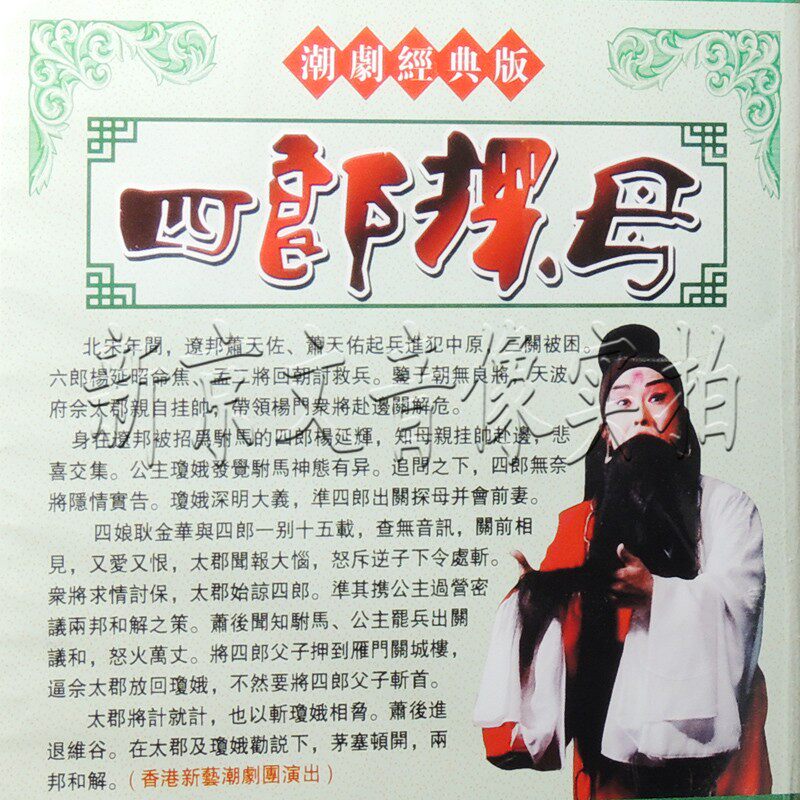 潮劇經典版
四郎探母
北宋年間，遼邦蕭天佐、蕭天佑起兵進犯中原，三關被困。
六郎楊延昭命焦、孟二將回朝討救兵。鑒于朝無良將，天波
府佘太郡親自挂帥，帶領楊門衆將赴邊關解危。
身在遼邦被招爲駙馬的四郎楊延輝，知母親挂帥赴邊，悲
喜交集。公主瓊娥發覺駙馬神態有异。追問之下，四郎無奈
將隱情實告。瓊娥深明大義，準四郎出關探母并會前妻。
四娘耿金華與四郎一别十五載，查無音訊，關前相
見，又愛又恨，太郡聞報大惱，怒斥逆子下令處斬。
衆將求情討保，太郡始諒四郎。準其携公主過營密
議兩邦和解之策。蕭後聞知駙馬、公主罷兵出關
議和，怒火萬丈。將四郎父子押到雁門關城樓，
逼佘太郡放回瓊娥，不然要將四郎父子斬首。
太郡將計就計，也以斬瓊娥相脅。蕭後進
退維谷。在太郡及瓊娥勸説下，茅塞頓開，兩
邦和解。（香港新藝潮劇團演出）
新京文音像实拍